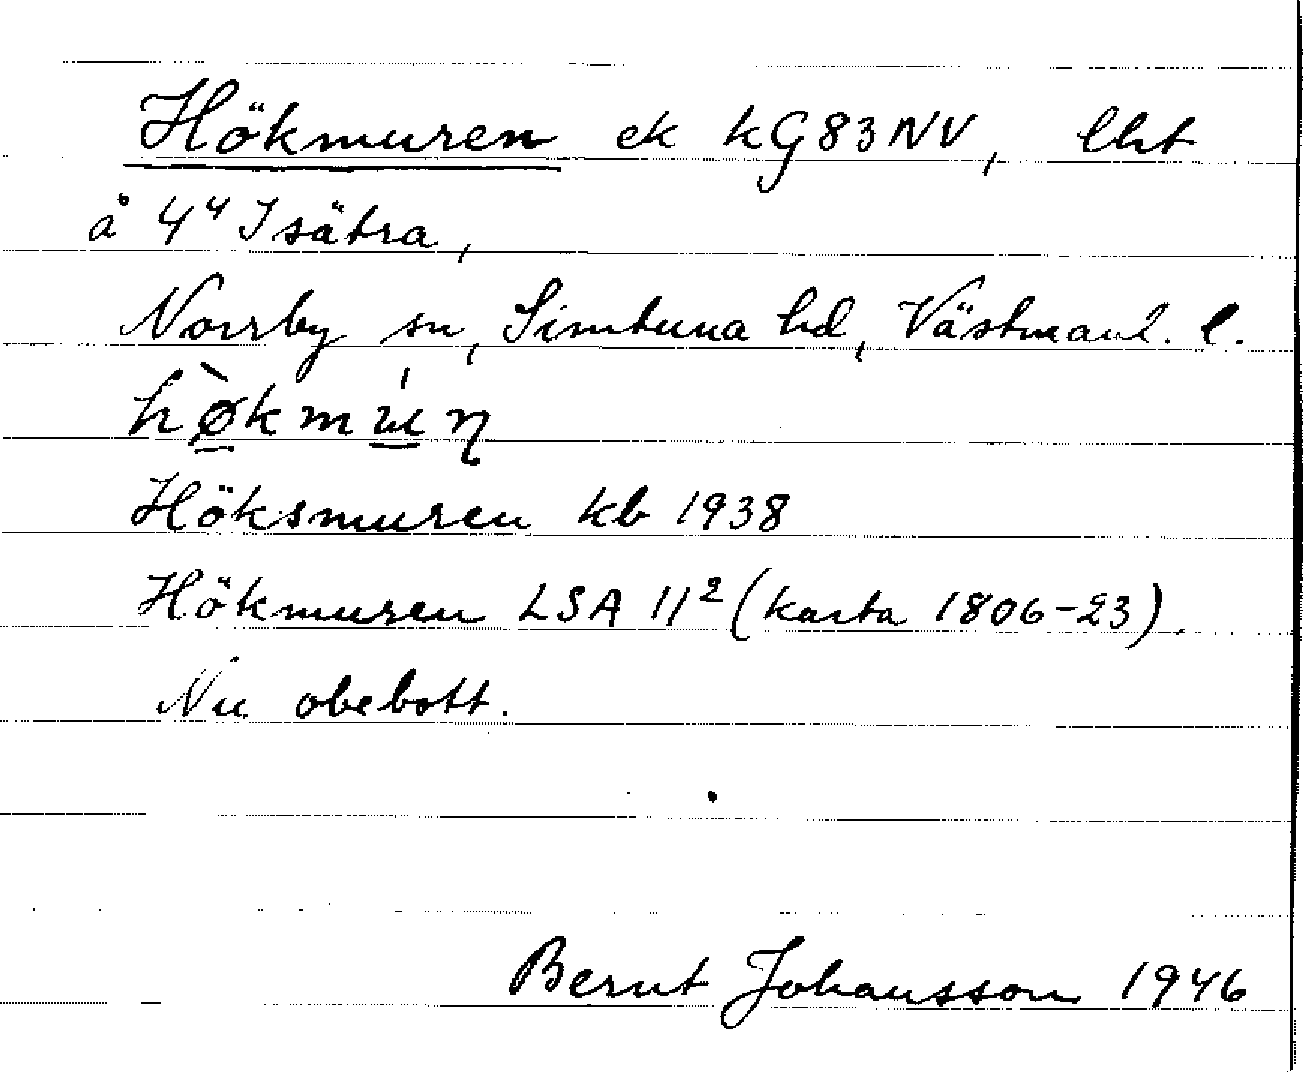 Hökmuren ek kG83NV, lht
å 4⁴ Isätra,
Norrby sn, Simtuna hd, Västmanl. l.
Höksmuren kb 1938
Hökmuren LSA 11² (karta 1806-23).
Nu obebott.
Bernt Johansson 1946